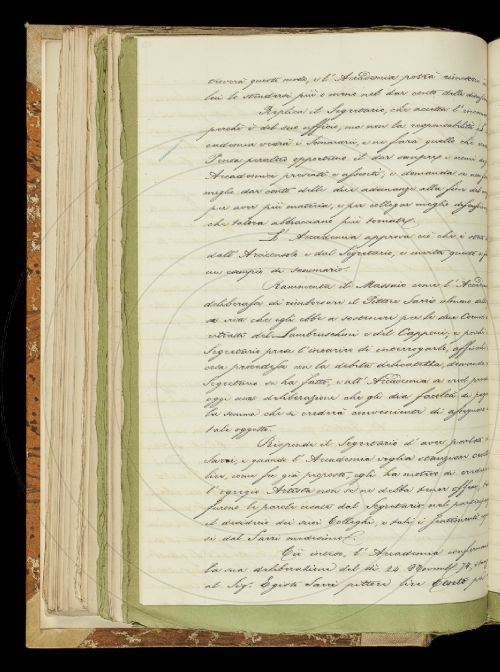 troverà questo modo, e l'Accademia potrà rimettere
lui lo stendersi più o meno nel dar conto delle
Replica il Segretario, che accetta l'incarico
perchè è del suo officio, ma non la responsabilità
cademia vedrà i Sommarii, e ne farà quello che
Pensa peraltro opportuno il dar sempre i nomi
Accademici presenti e assenti, e domanda se non
meglio dar conto delle due adunanze alla fine del
per aver più materia, e per collegar meglio
che talora abbracciano più tornate.
L'Accademia approva ciò che è stato
dall'Arciconsolo e dal Segretario, e invita questo
un esempio di sommario.
Rammenta il Massaio come l'Accademia
deliberasse di rimborsare il Pittore Sarri almeno delle
se vive che egli ebbe a sostenere per le due
ritratti del Lambruschini e del Capponi, e poichè
Segretario prese l'incarico di interrogarlo, affinchè
cosa procedesse con la debita delicatezza, domanda
Segretario se ha fatto, e all'Accademia se vuol prendere
oggi una deliberazione che gli dia facoltà di pagare
la somma che si crederà conveniente di assegnare
tale oggetto.
Risponde il Segretario d'aver parlato
Sarri, e quando l'Accademia voglia stanziare cento
lire, come fu già proposto, egli ha motivo di credere
l'egregio Artista non se ne debba tener offeso,
furono le parole usate dal Segretario nel partecipargli
il desiderio dei suoi Colleghi, e tali i sentimenti
si dal Sarri medesimo.
Ciò inteso, l'Accademia conferma
la sua deliberazione del dì 24 Novemb. 74,
al Sig. Egisto Sarri pittore lire Cento per